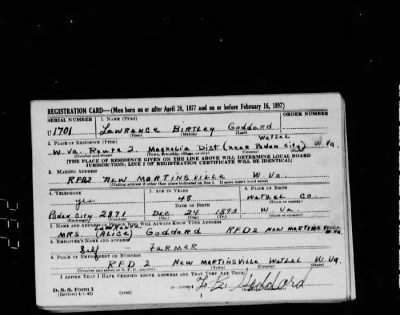 REGISTRATION CARD—(Men born on or after April 28, 1877 and on or before February 16, 1897)
SERIAL NUMBER 1. NAME (Print) ORDER NUMBER
U 1701 LAWRENCE BIRTLEY Goddard
(First) (Middle) (Last)
2. PLACE OF RESIDENCE (Print) Wetzel
W. Va. Route 2. Magnolia Dist (near Paden City) W Va
(Number and street) (Town, township, village, or city) (County) (State)
[THE PLACE OF RESIDENCE GIVEN ON THE LINE ABOVE WILL DETERMINE LOCAL BOARD
JURISDICTION; LINE 2 OF REGISTRATION CERTIFICATE WILL BE IDENTICAL]
3. MAILING ADDRESS
RFD2 NEW MARTINSVILLE W Va.
[Mailing address if other than place indicated on line 2. If same insert word same]
4. TELEPHONE 5. AGE IN YEARS 6. PLACE OF BIRTH
yes 48 Wetzel Co.
DATE OF BIRTH (Town or county)
Paden City 2871 Dec 24 1893 W Va.
(Mo.) (Day) (Yr.) (State or country)
7. NAME AND ADDRESS OF PERSON WHO WILL ALWAYS KNOW YOUR ADDRESS
LAWRENCE
MRS. (ALICE) Goddard RFD2 New Martinsville
8. EMPLOYER'S NAME AND ADDRESS
Self Farmer
9. PLACE OF EMPLOYMENT OR BUSINESS
RFD 2 New Martinsville Wetzel W. Va.
(Number and street or R. F. D. number) (Town) (County) (State)
I AFFIRM THAT I HAVE VERIFIED ABOVE ANSWERS AND THAT THEY ARE TRUE.
D. S. S. Form 1 L B Goddard